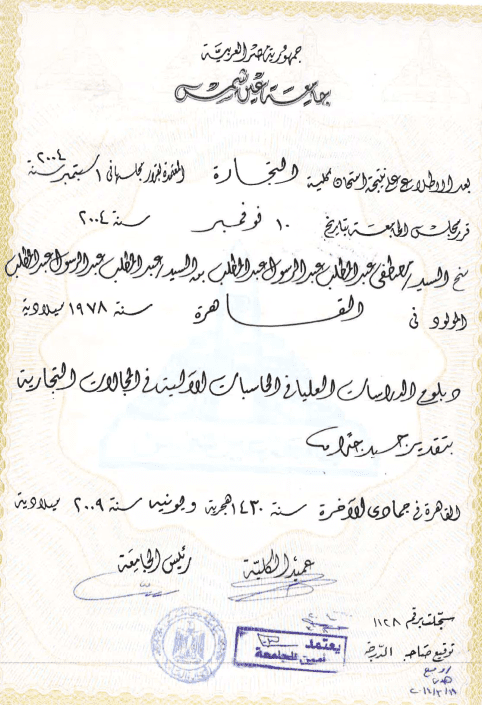 جمهورية مصر العربية
جامعة عين شمس
بعد الاطلاع على نتيجة امتحان كلية التجارة المعتمدة لمزور بجلستها فى ١ سبتمبر سنة ٢٠٠٤
قرر مجلس الجامعة بتاريخ ١٠ نوفمبر سنة ٢٠٠٤
منح السيد / مصطفى عبد المطلب عبد الرسول عبد المطلب بن السيد / عبد المطلب عبد الرسول عبد المطلب
المولود فى القاهرة سنة ١٩٧٨ ميلادية
دبلوم الدراسات العليا فى الحاسبات الآلية فى المجالات التجارية
بتقدير جيد جداً
القاهرة فى جمادى الآخرة سنة ١٤٣٠ هجرية ويونيه سنة ٢٠٠٩ ميلادية
عميد الكلية رئيس الجامعة
سجلت برقم ١١٢٨
يعتمد
أمين الجامعة
توقيع صاحب الدرجة